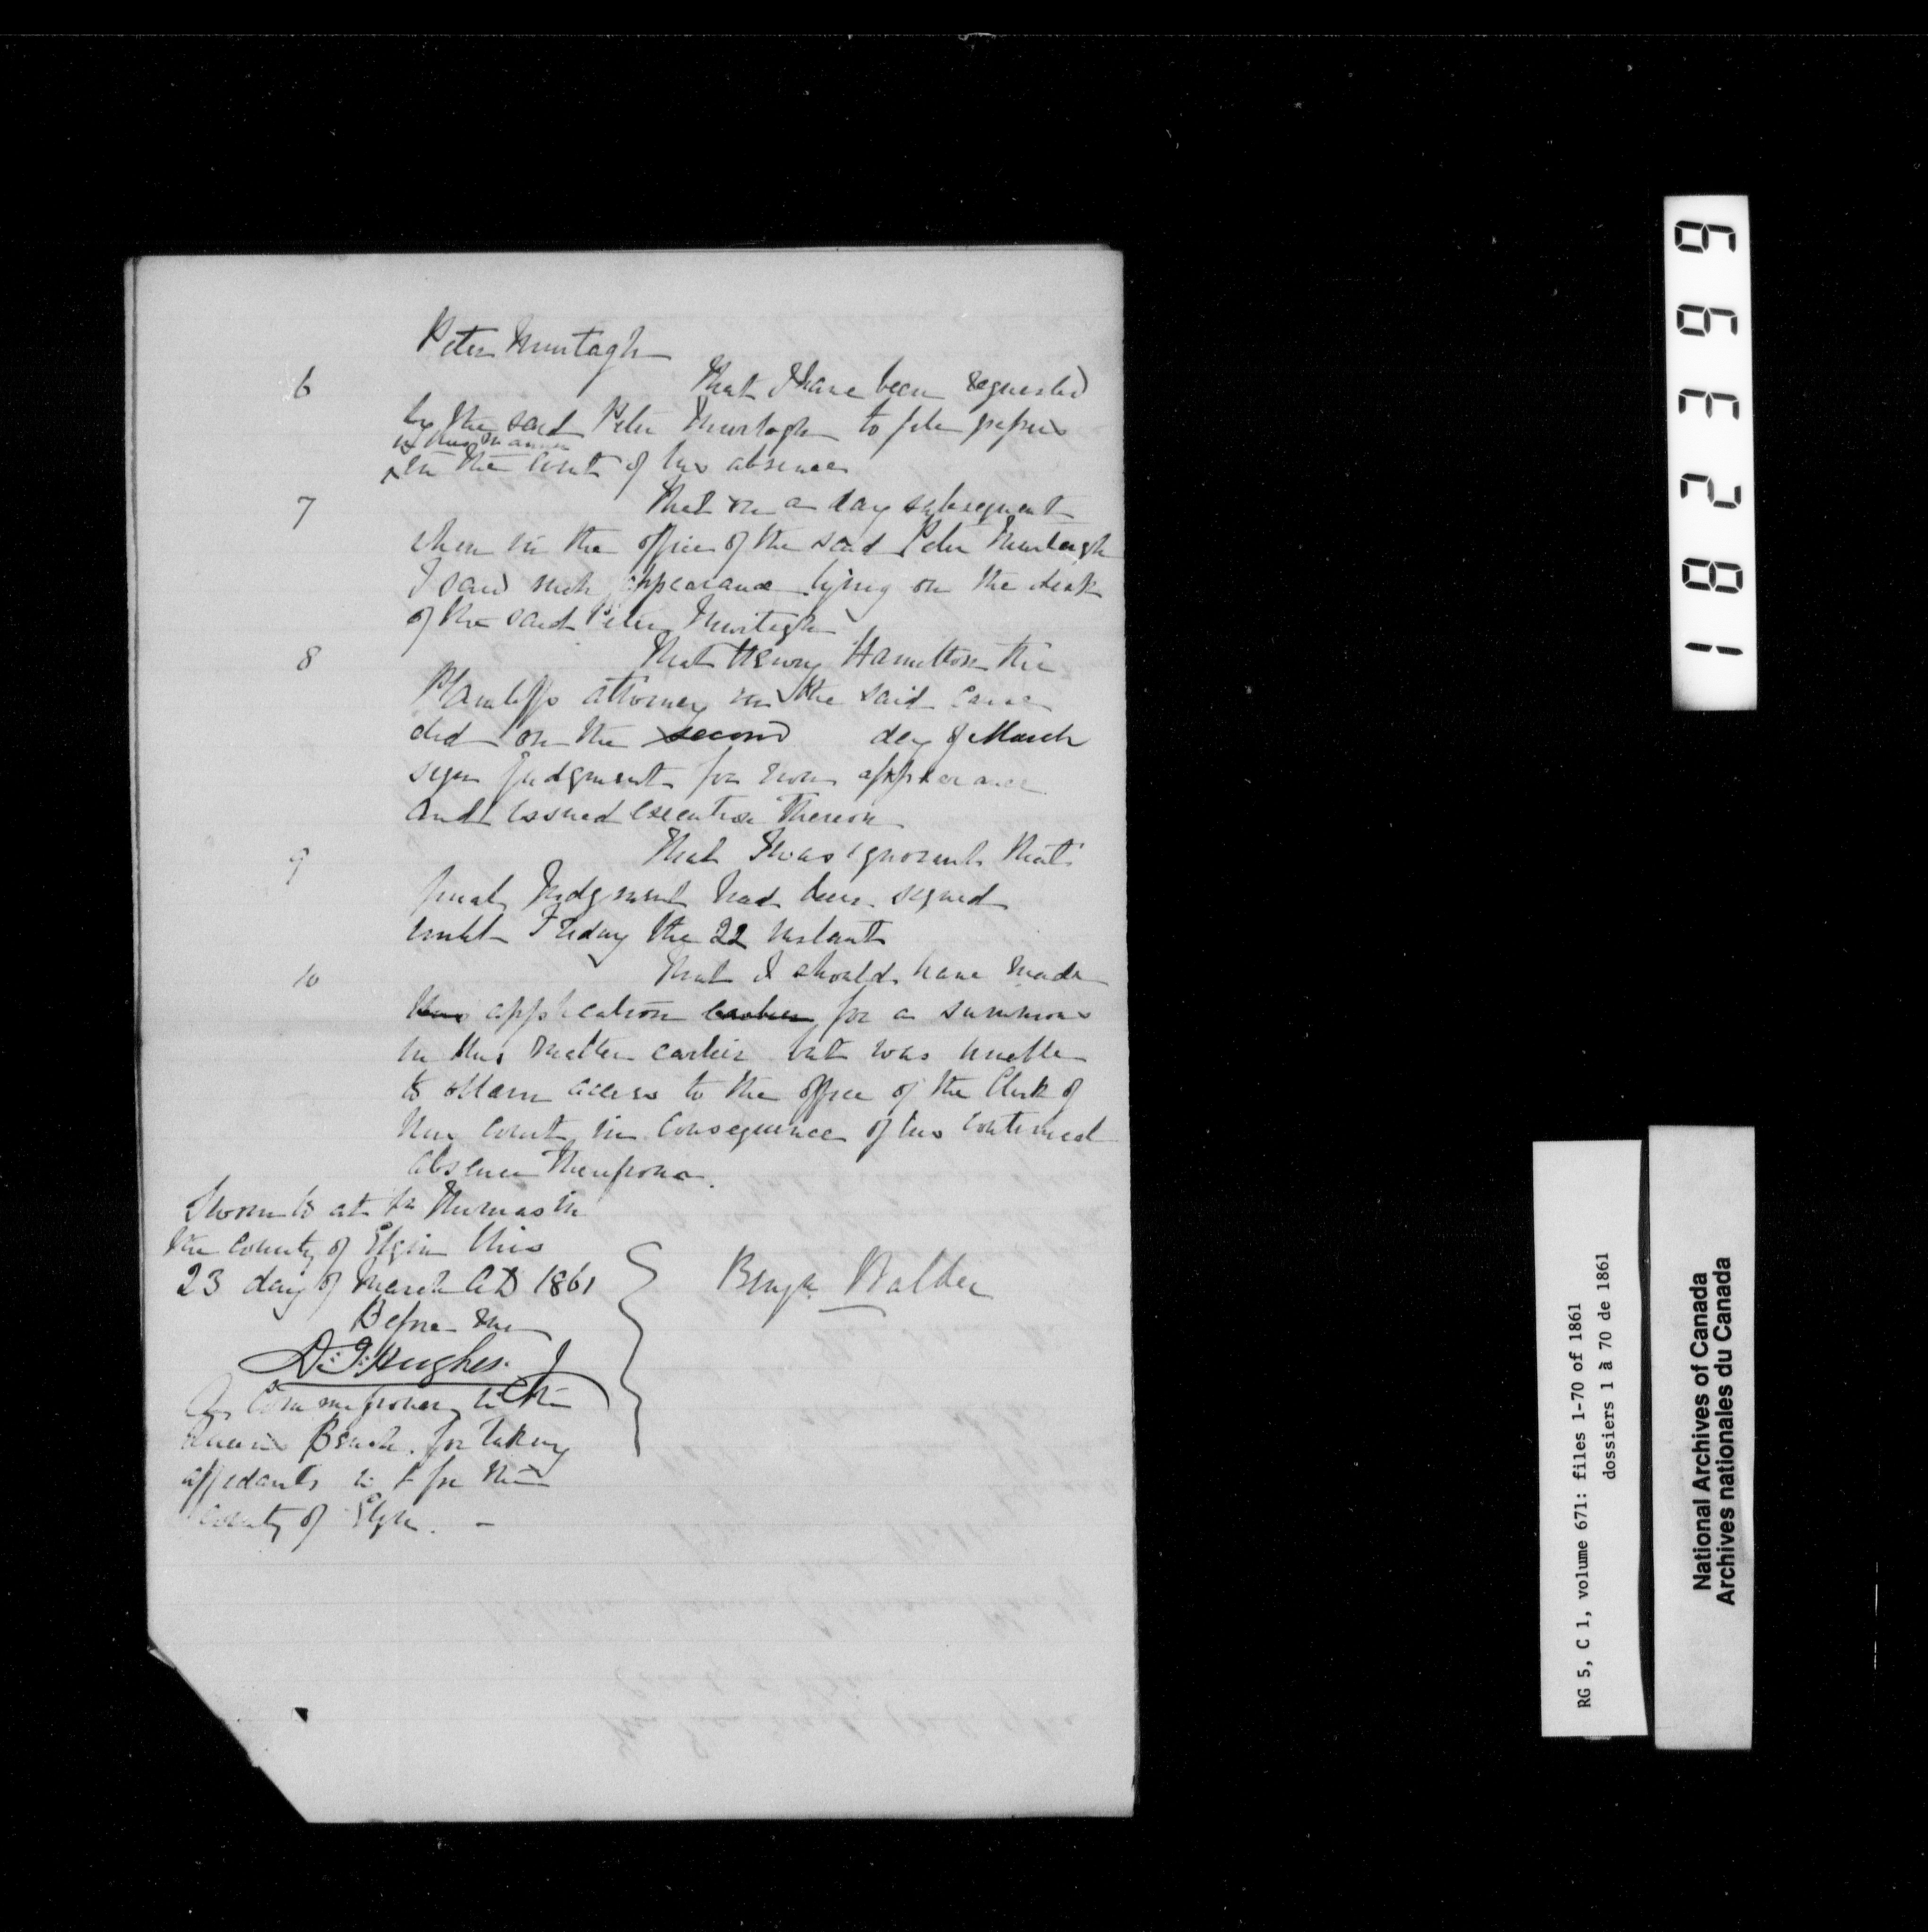 Peter Murtagh
6 That I have been requested
by the said Peter Murtagh to file papers
in this manner
in the event of his absence
7 That on a day subsequent
when in the office of the said Peter Murtagh
I saw such appearance lying on the desk
of the said Peter Murtagh
8 That Henry Hamilton the
Plaintiffs attorney in the said cause
did on the second day of March
sign Judgment for non appearance
and issued execution thereon
9 That I was ignorant that
final Judgment had been signed
until Friday the 22 instant
10 That I should have made
this application earlier for a summons
in this matter earlier but was unable
to obtain access to the office of the Clerk of
this Court in consequence of his continued
absence therefrom.
Sworn to at St Thomas in
the County of Elgin this
23 day of March AD 1861
Before me
D. J. Hughes. J
A Commissioner in the
Queens Bench. for taking
affidavits in & for the
County of Elgin. -
Benjn. Walker
182399
RG 5, C 1, volume 671: files 1-70 of 1861
dossiers 1 à 70 de 1861
National Archives of Canada
Archives nationales du Canada